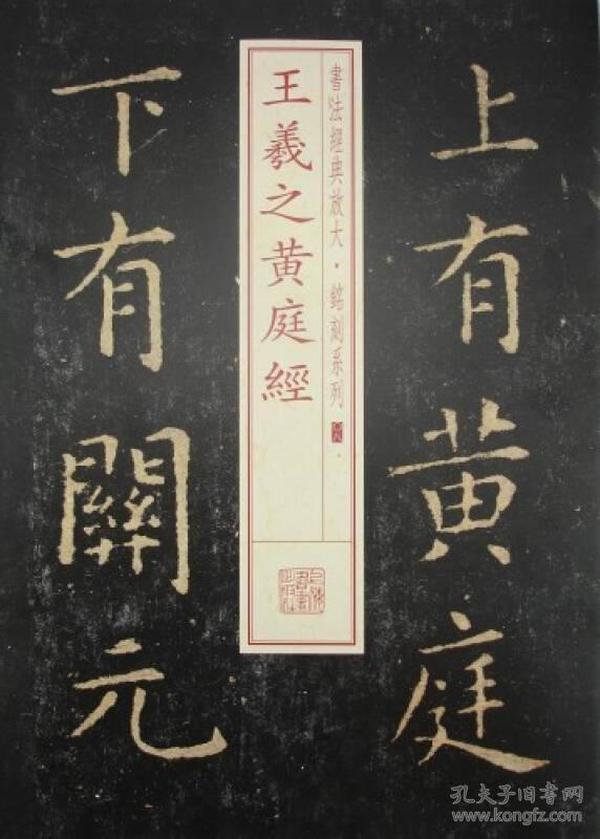 上有黄庭
書法經典放大·銘刻系列
王羲之黄庭經
下有關元
孔夫子旧书网
www.kongfz.com